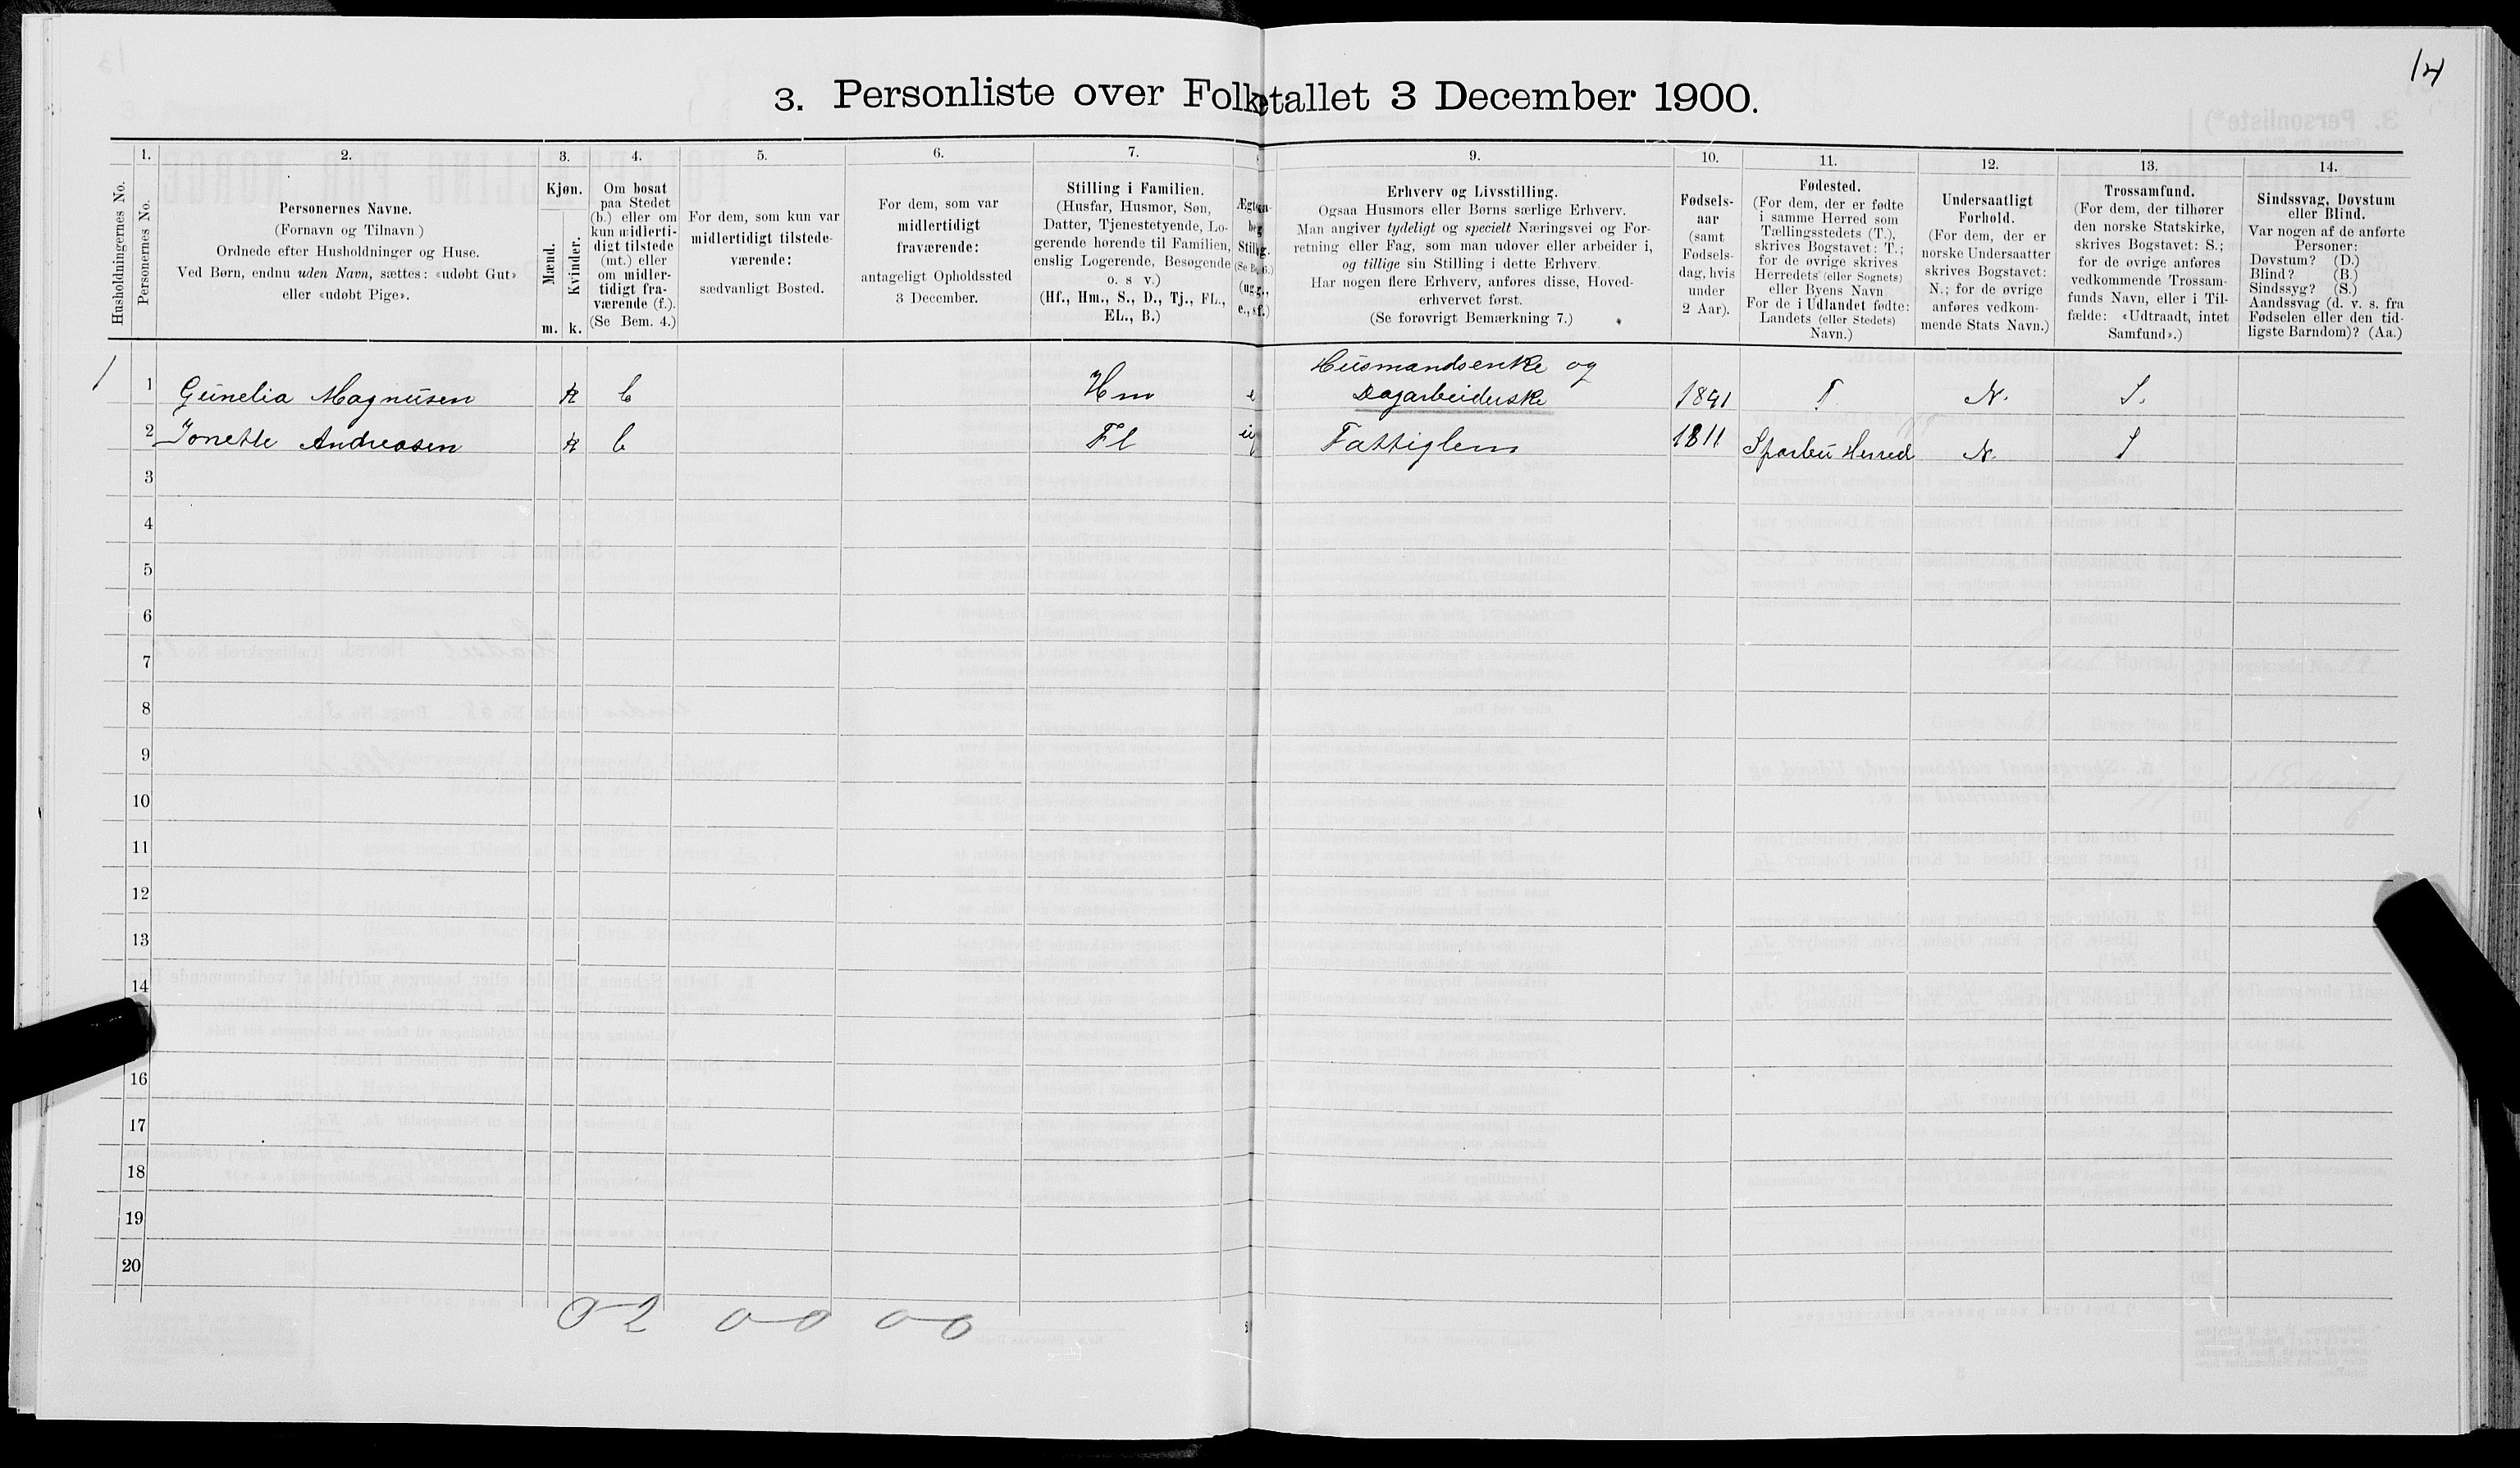 14
3. Personliste over Folketallet 3 December 1900.
1. 2. 3. 4. 5. 6. 7. 9. 10. 11. 12. 13. 14.
Husholdningernes No.
Personernes No.
Personernes Navne.
(Fornavn og Tilnavn)
Ordnede efter Husholdninger og Huse.
Ved Børn, endnu uden Navn, sættes: «udøbt Gut»
eller «udøbt Pige».
Kjøn.
Mænd.
Kvinder.
m. k.
Om bosat
paa Stedet
(b.) eller om
kun midlerti-
digt tilstede
(mt.) eller
om midler-
tidigt fra-
værende (f.).
(Se Bem. 4.)
For dem, som kun var
midlertidigt tilstede-
værende:
sædvanligt Bosted.
For dem, som var
midlertidigt
fraværende:
antageligt Opholdssted
3 December.
Stilling i Familien.
(Husfar, Husmor, Søn,
Datter, Tjenestetyende, Lo-
gerende hørende til Familien,
enslig Logerende, Besøgende
o. s v.)
(Hf., Hm., S., D., Tj., FL.,
EL., B.)
Erhverv og Livsstilling.
Ogsaa Husmors eller Børns særlige Erhverv.
Man angiver tydeligt og specielt Næringsvei og For-
retning eller Fag, som man udøver eller arbeider i,
og tillige sin Stilling i dette Erhverv.
Har nogen flere Erhverv, anføres disse, Hoved-
erhvervet først.
(Se forøvrigt Bemærkning 7.)
Fødsels-
aar
(samt
Fødsels-
dag, hvis
under
2 Aar).
Fødested.
(For dem, der er fødte
i samme Herred som
Tællingsstedets (T.),
skrives Bogstavet: T.;
for de øvrige skrives
Herredets (eller Sognets)
eller Byens Navn
For de i Udlandet fødte:
Landets (eller Stedets)
Navn.)
Undersaatligt
Forhold.
(For dem, der er
norske Undersaatter
skrives Bogstavet:
N.; for de øvrige
anføres vedkom-
mende Stats Navn.)
Trossamfund.
(For dem, der tilhører
den norske Statskirke,
skrives Bogstavet: S.;
for de øvrige anføres
vedkommende Trossam-
funds Navn, eller i Til-
fælde: «Udtraadt, intet
Samfund».)
Sindssvag, Døvstum
eller Blind.
Var nogen af de anførte
Personer:
Døvstum? (D.)
Blind? (B.)
Sindssyg? (S.)
Aandssvag (d. v. s. fra
Fødselen eller den tid-
ligste Barndom)? (Aa.)
Husmandsenke og
1 1 Gunelia Magnusen k b Hm e Dagarbeiderske T. N. S.
2 Jonette Andreasen k b Fl Fattiglem 1811 Sparbu Herred N. S
3
4
5
6
7
8
9
10
11
12
13
14
16
17
18
19
20
0 2 0 0 0 0